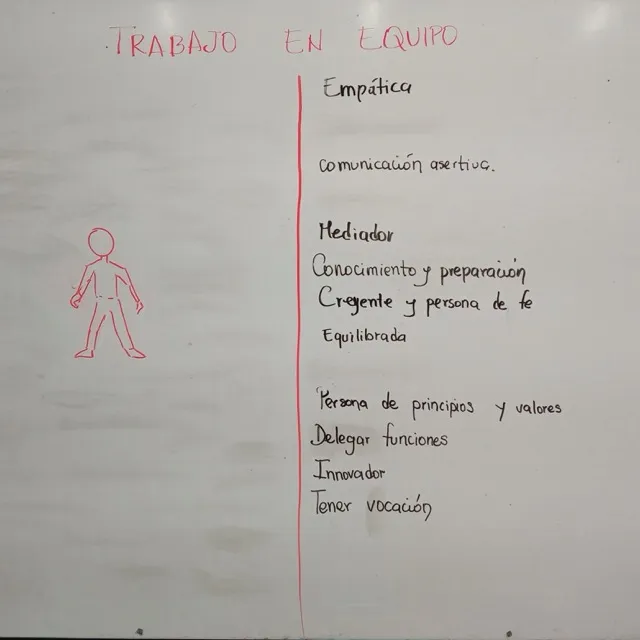 TRABAJO EN EQUIPO
Empática
comunicación asertiva.
Mediador
Conocimiento y preparación
Creyente y persona de fe
Equilibrada
Persona de principios y valores
Delegar funciones
Innovador
Tener vocación